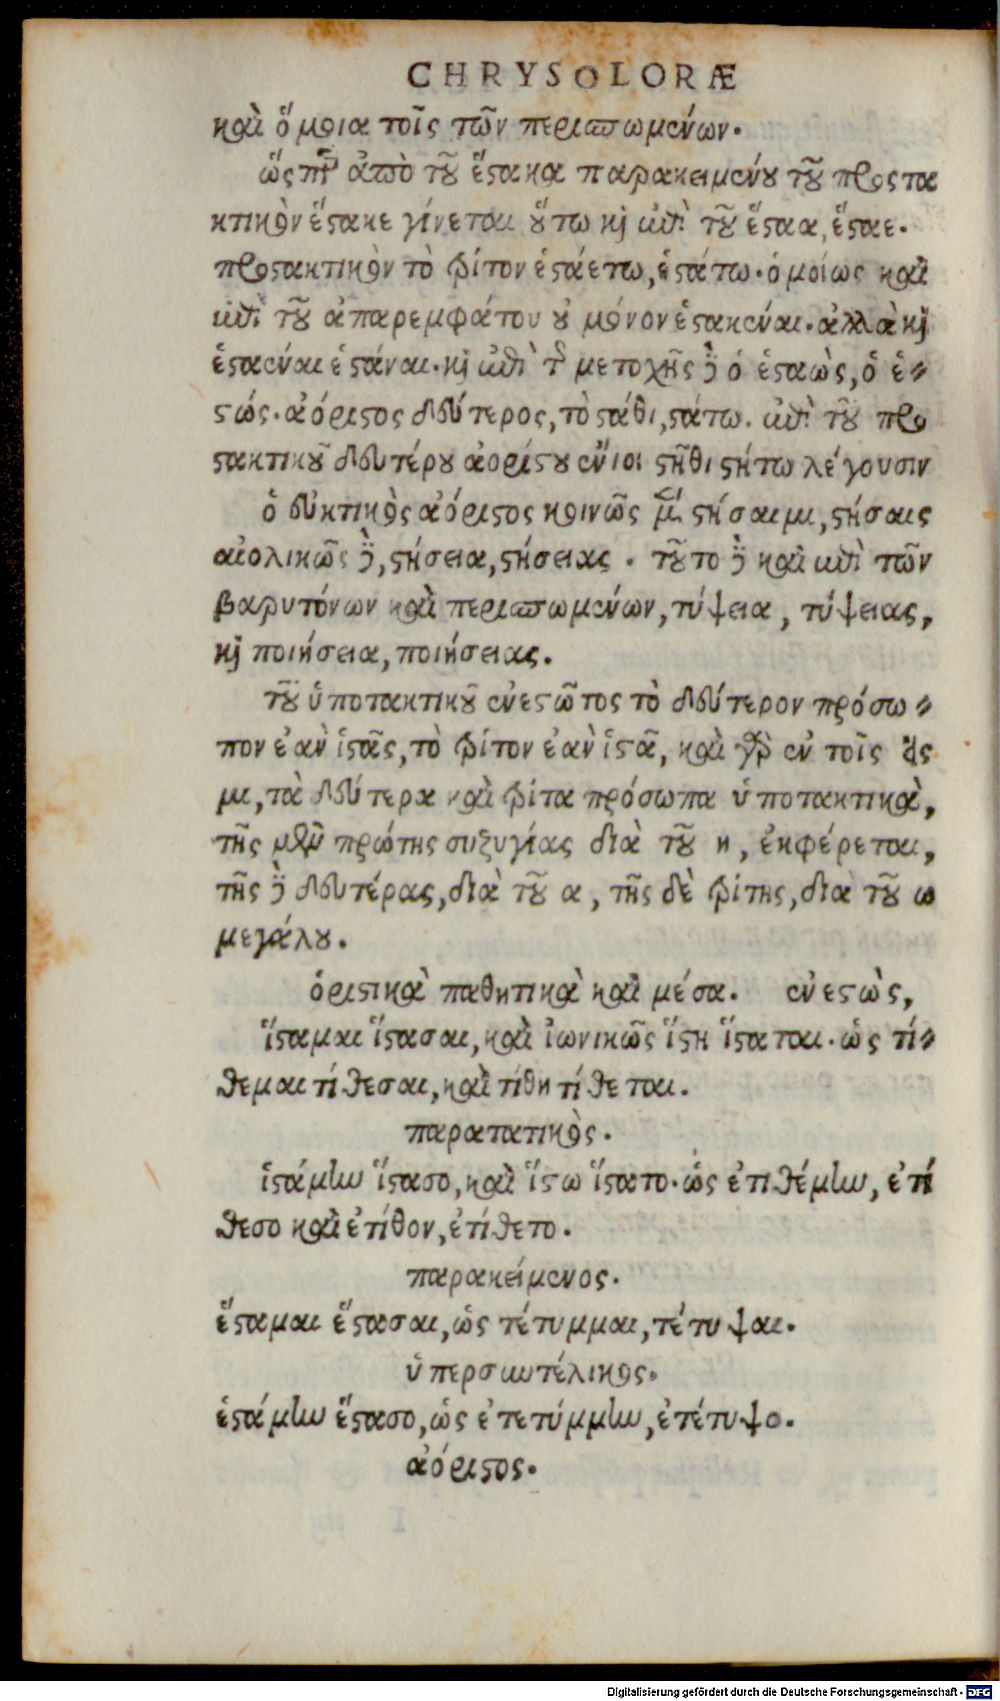 CHRYSOLORÆ
καὶ ὅμοια τοῖς τῶν περισπωμένων.
ὥσπερ ἀπὸ τοῦ ἕστακα παρακειμένου τοῦ προστα
κτικὸν ἕστακε γίνεται οὕτω καὶ ἐπὶ τοῦ ἕσταα, ἕσταε.
προστακτικὸν τὸ τρίτον ἑστάετω, ἑστάτω. ὁμοίως καὶ
ἐπὶ τοῦ ἀπαρεμφάτου οὐ μόνον ἑστακέναι. ἀλλὰ καὶ
ἑσταέναι ἑστάναι. καὶ ἐπὶ τῆς μετοχῆς δὲ ὁ ἑσταὼς, ὁ ἑ-
στώς. ἀόριστος δεύτερος, τὸ στάθι, στάτω. ἐπὶ τοῦ προ
στακτικοῦ δευτέρου ἀορίστου ἔνιοι στῆθι στήτω λέγουσιν
ὁ εὐκτικὸς ἀόριστος κοινῶς μὲν στήσαιμι, στήσαις
αἰολικῶς δὲ, στήσεια, στήσειας. τοῦτο δὲ καὶ ἐπὶ τῶν
βαρυτόνων καὶ περισπωμένων, τύψεια, τύψειας,
καὶ ποιήσεια, ποιήσειας.
τοῦ ὑποτακτικοῦ ἐνεστῶτος τὸ δεύτερον πρόσω-
πον ἐὰν ἱστᾶς, τὸ τρίτον ἐὰν ἱστᾶ, καὶ γὰρ ἐν τοῖς εἰς
μι, τὰ δεύτερα καὶ τρίτα πρόσωπα ὑποτακτικὰ,
τῆς μὲν πρώτης συζυγίας διὰ τοῦ η, ἐκφέρεται,
τῆς δὲ δευτέρας, διὰ τοῦ α, τῆς δὲ τρίτης, διὰ τοῦ ω
μεγάλου.
ὁριστικὰ παθητικὰ καὶ μέσα. ἐνεστὼς,
ἵσταμαι ἵστασαι, καὶ ἰωνικῶς ἵστη ἵσταται. ὡς τί-
θεμαι τίθεσαι, καὶ τίθη τίθεται.
παρατατικὸς.
ἱστάμην ἵστασο, καὶ ἵστω ἵστατο. ὡς ἐτιθέμην, ἐτί
θεσο καὶ ἐτίθου, ἐτίθετο.
παρακείμενος.
ἕσταμαι ἕστασαι, ὡς τέτυμμαι, τέτυψαι.
ὑπερσυντέλικος.
ἑστάμην ἕστασο, ὡς ἐτετύμμην, ἐτέτυψο.
ἀόριστος.
Digitalisierung gefördert durch die Deutsche Forschungsgemeinschaft - DFG